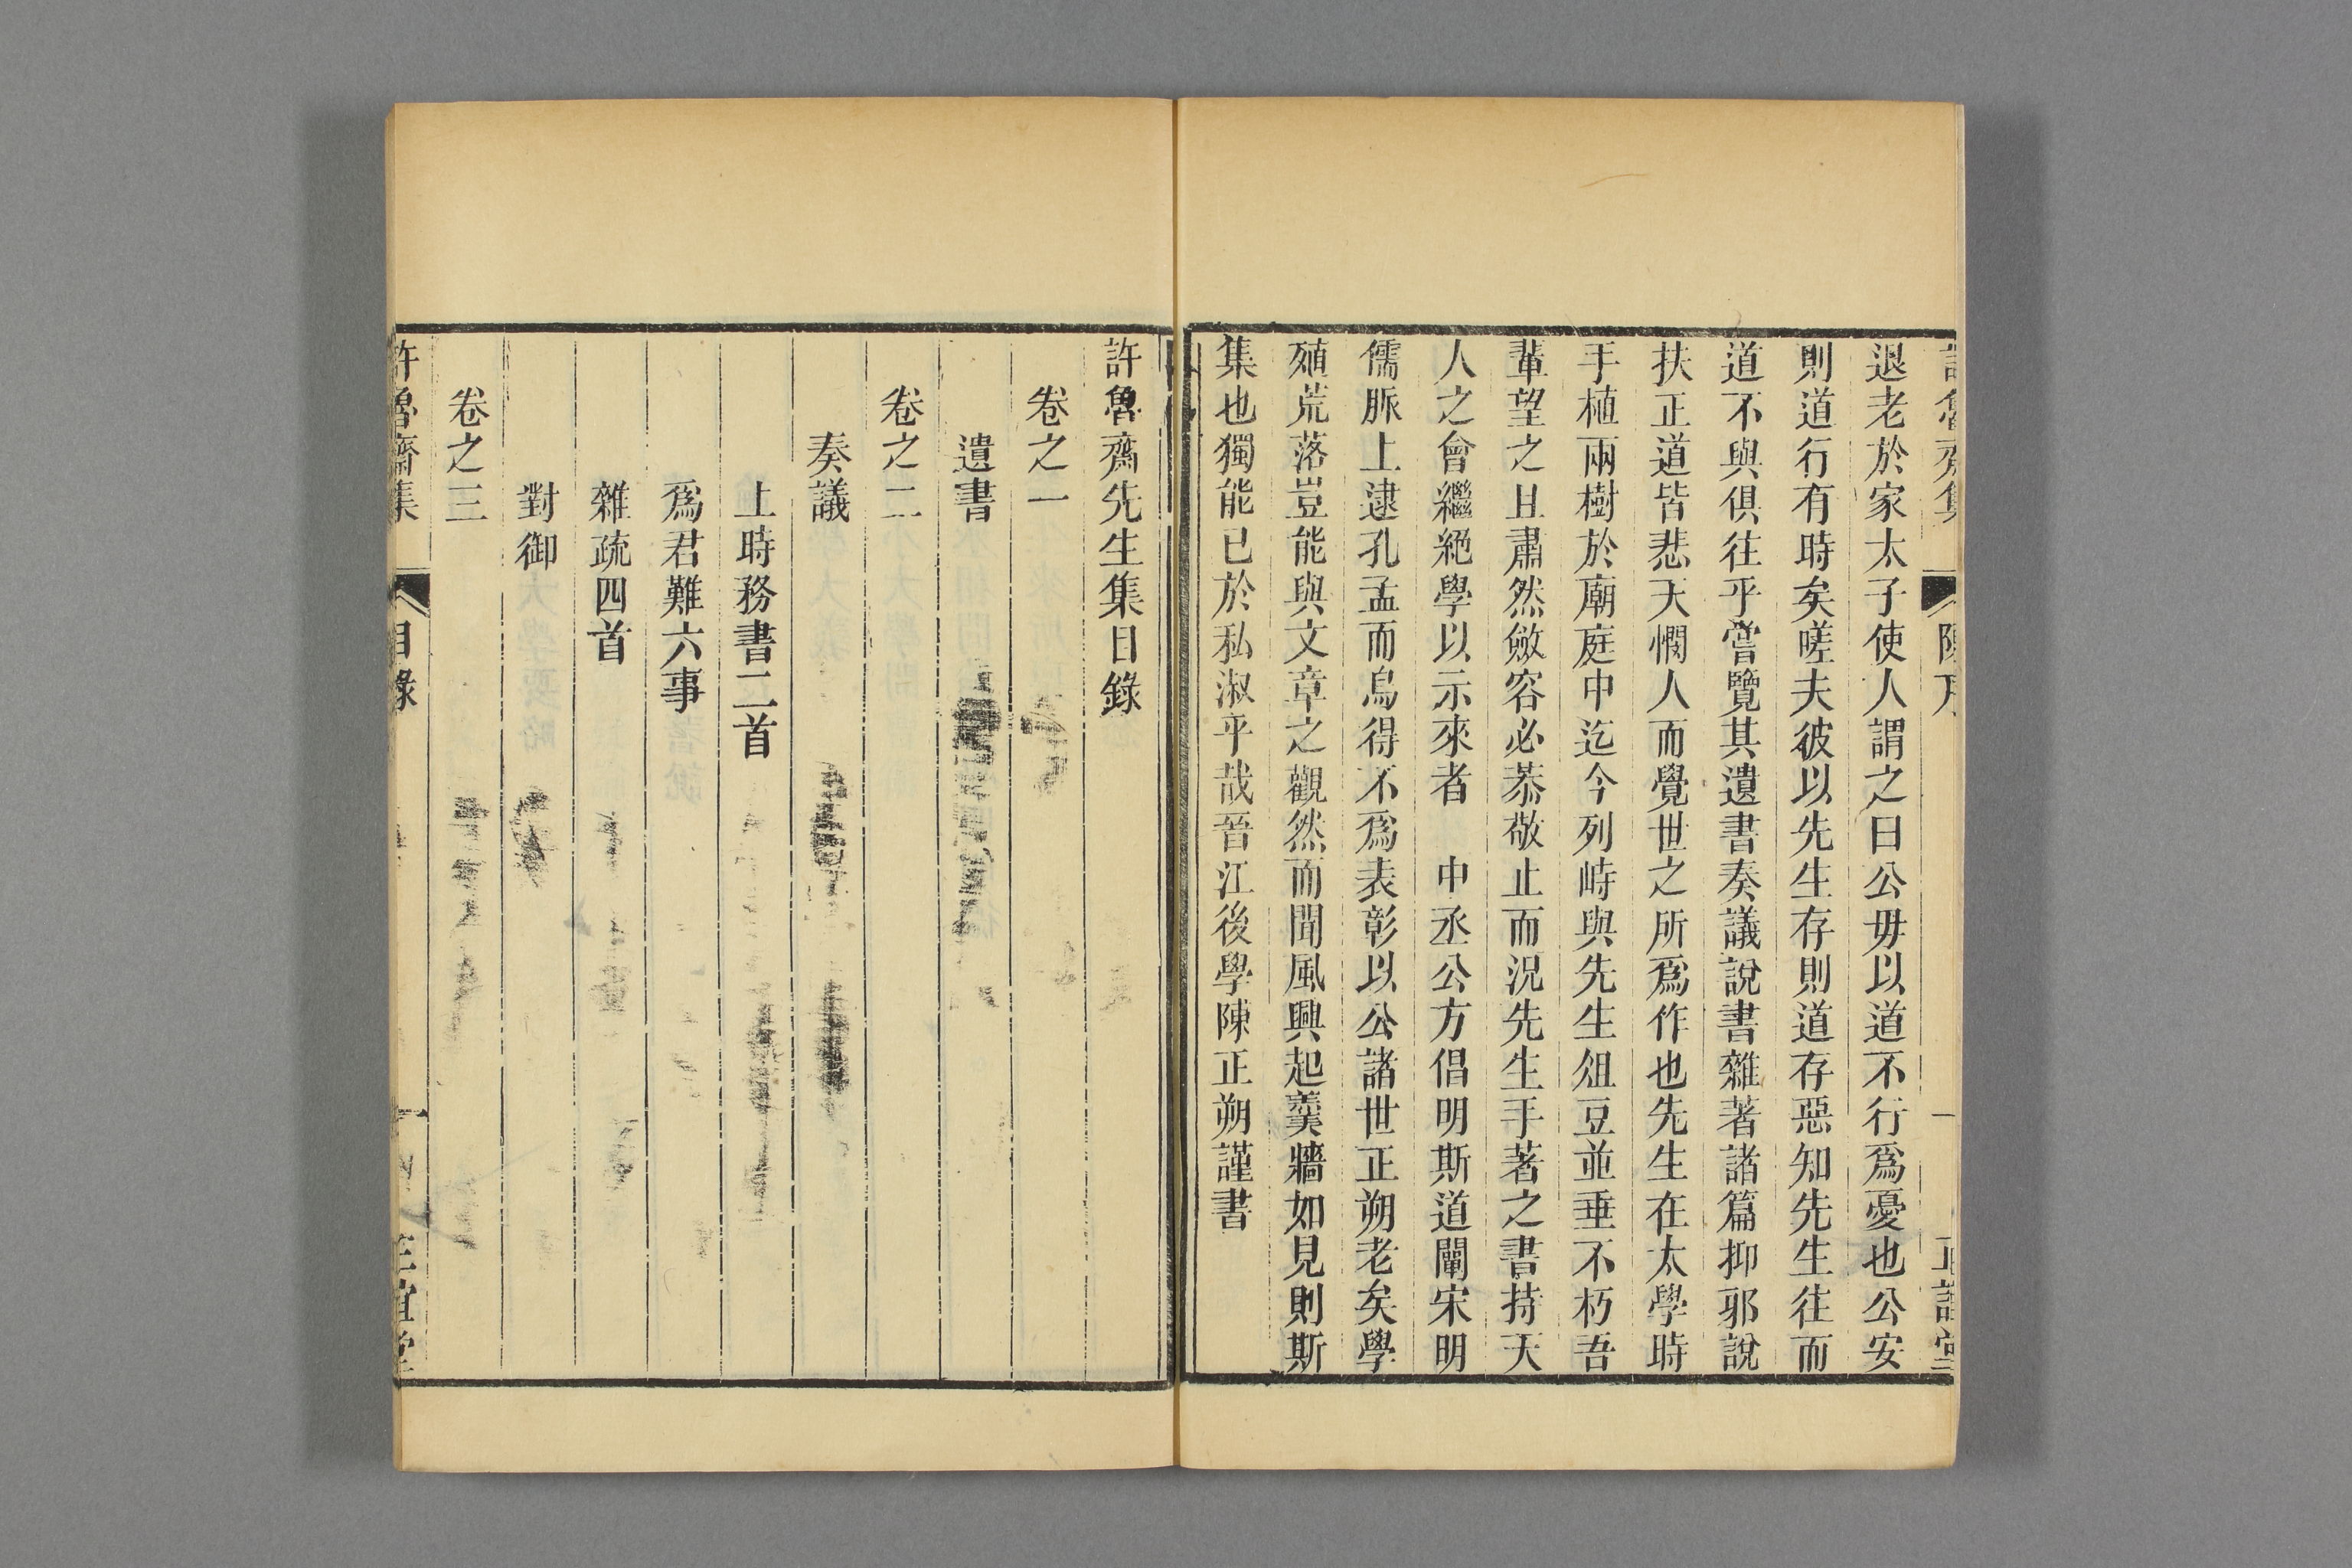 許魯齋集 陳序 一 正誼堂
退老於家太子使人謂之曰公毋以道不行爲憂也公安
則道行有時矣嗟夫彼以先生存則道存惡知先生往而
道不與俱往乎嘗覽其遺書奏議說書雜著諸篇抑邪說
扶正道皆悲天憫人而覺世之所爲作也先生在太學時
手植兩樹於廟庭中迄今列峙與先生俎豆並垂不朽吾
輩望之且肅然斂容必恭敬止而況先生手著之書持天
人之會繼絕學以示來者　中丞公方倡明斯道闡宋明
儒脈上逮孔孟而烏得不爲表彰以公諸世正朔老矣學
殖荒落豈能與文章之觀然而聞風興起羹牆如見則斯
集也獨能已於私淑乎哉晉江後學陳正朔謹書
許魯齋先生集目錄
卷之一
遺書
卷之二
奏議
上時務書二首
爲君難六事
雜疏四首
對御
卷之三
許魯齋集 目錄 一 正誼堂